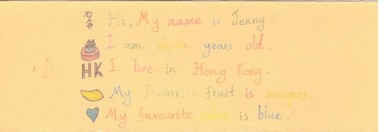 名 Hi, My name is Jenny.
I am eleven years old.
HK I live in Hong Kong.
My favourite fruit is mangoes.
My favourite color is blue.